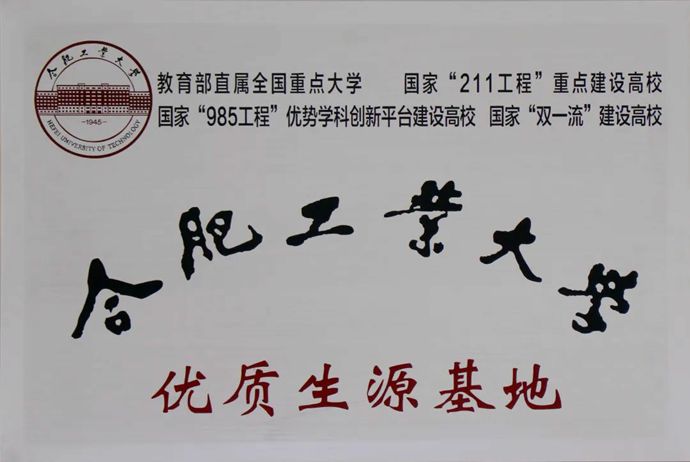 合肥工业大学
1945
HEFEI UNIVERSITY OF TECHNOLOGY
教育部直属全国重点大学 国家“211工程”重点建设高校
国家“985工程”优势学科创新平台建设高校 国家“双一流”建设高校
合肥工業大学
优质生源基地